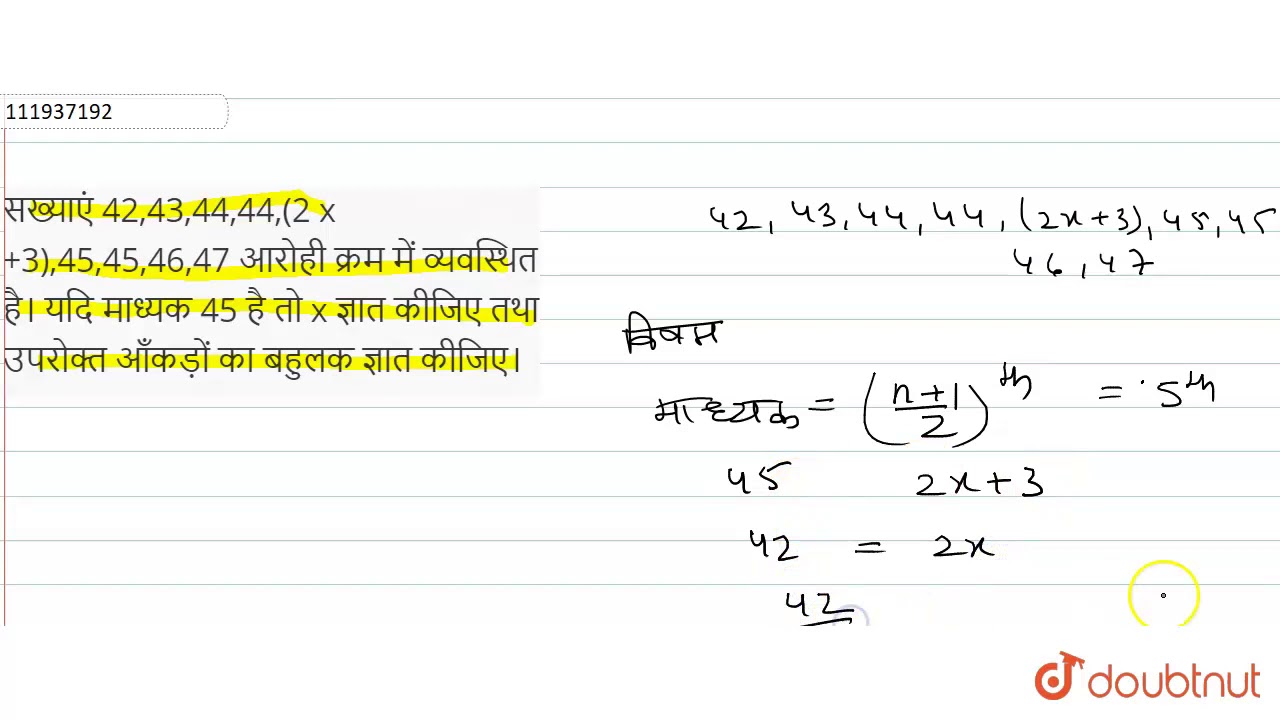 111937192
सख्याएं 42,43,44,44,(2 x
+3),45,45,46,47 आरोही क्रम में व्यवस्थित
है। यदि माध्यक 45 है तो x ज्ञात कीजिए तथा
उपरोक्त आँकड़ों का बहुलक ज्ञात कीजिए।
42, 43, 44, 44, (2x+3), 45, 45
46, 47
विषम
माध्यक = (n+1/2)^th = 5th
45 2x+3
42 = 2x
42
doubtnut